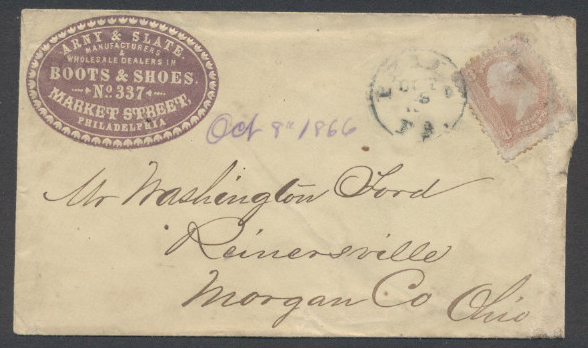 ARNY & SLATE,
MANUFACTURERS
&
WHOLESALE DEALERS IN
BOOTS & SHOES.
No. 337
MARKET STREET,
PHILADELPHIA
Oct 8th 1866
PA
Mr Washington Ford
Reinersville
Morgan Co Ohio